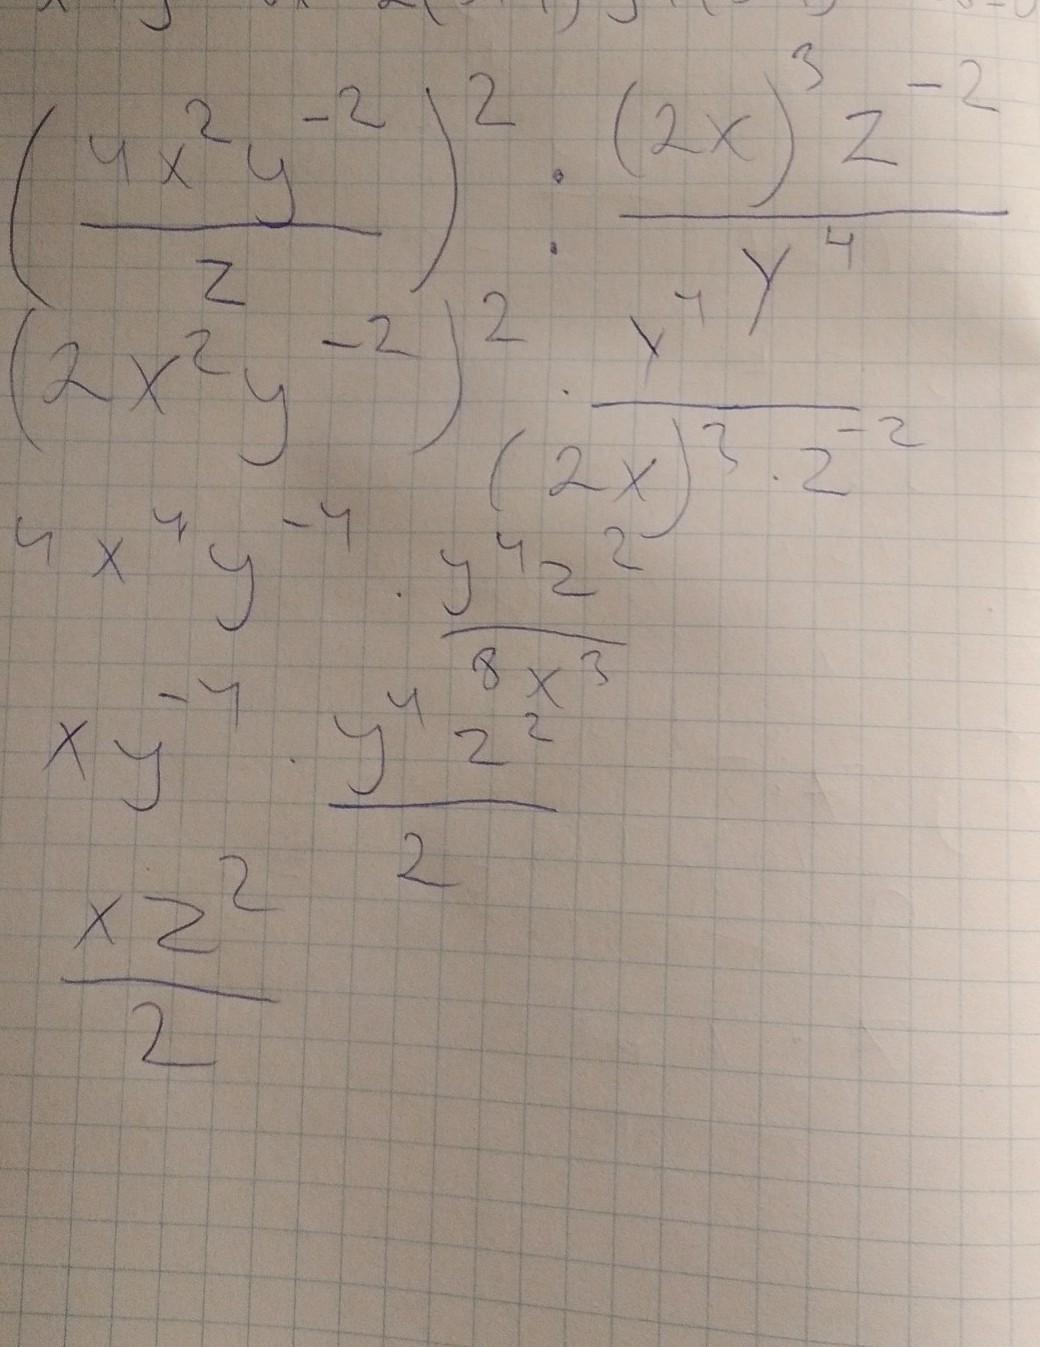 (4x² y⁻² / z)² : (2x)³ z⁻² / y⁴
(2x² y⁻²)² · y⁴ / (2x)³ · z⁻²
4x⁴ y⁻⁴ · y⁴ z² / 8x³
x y⁻⁴ · y⁴ z² / 2
x z² / 2